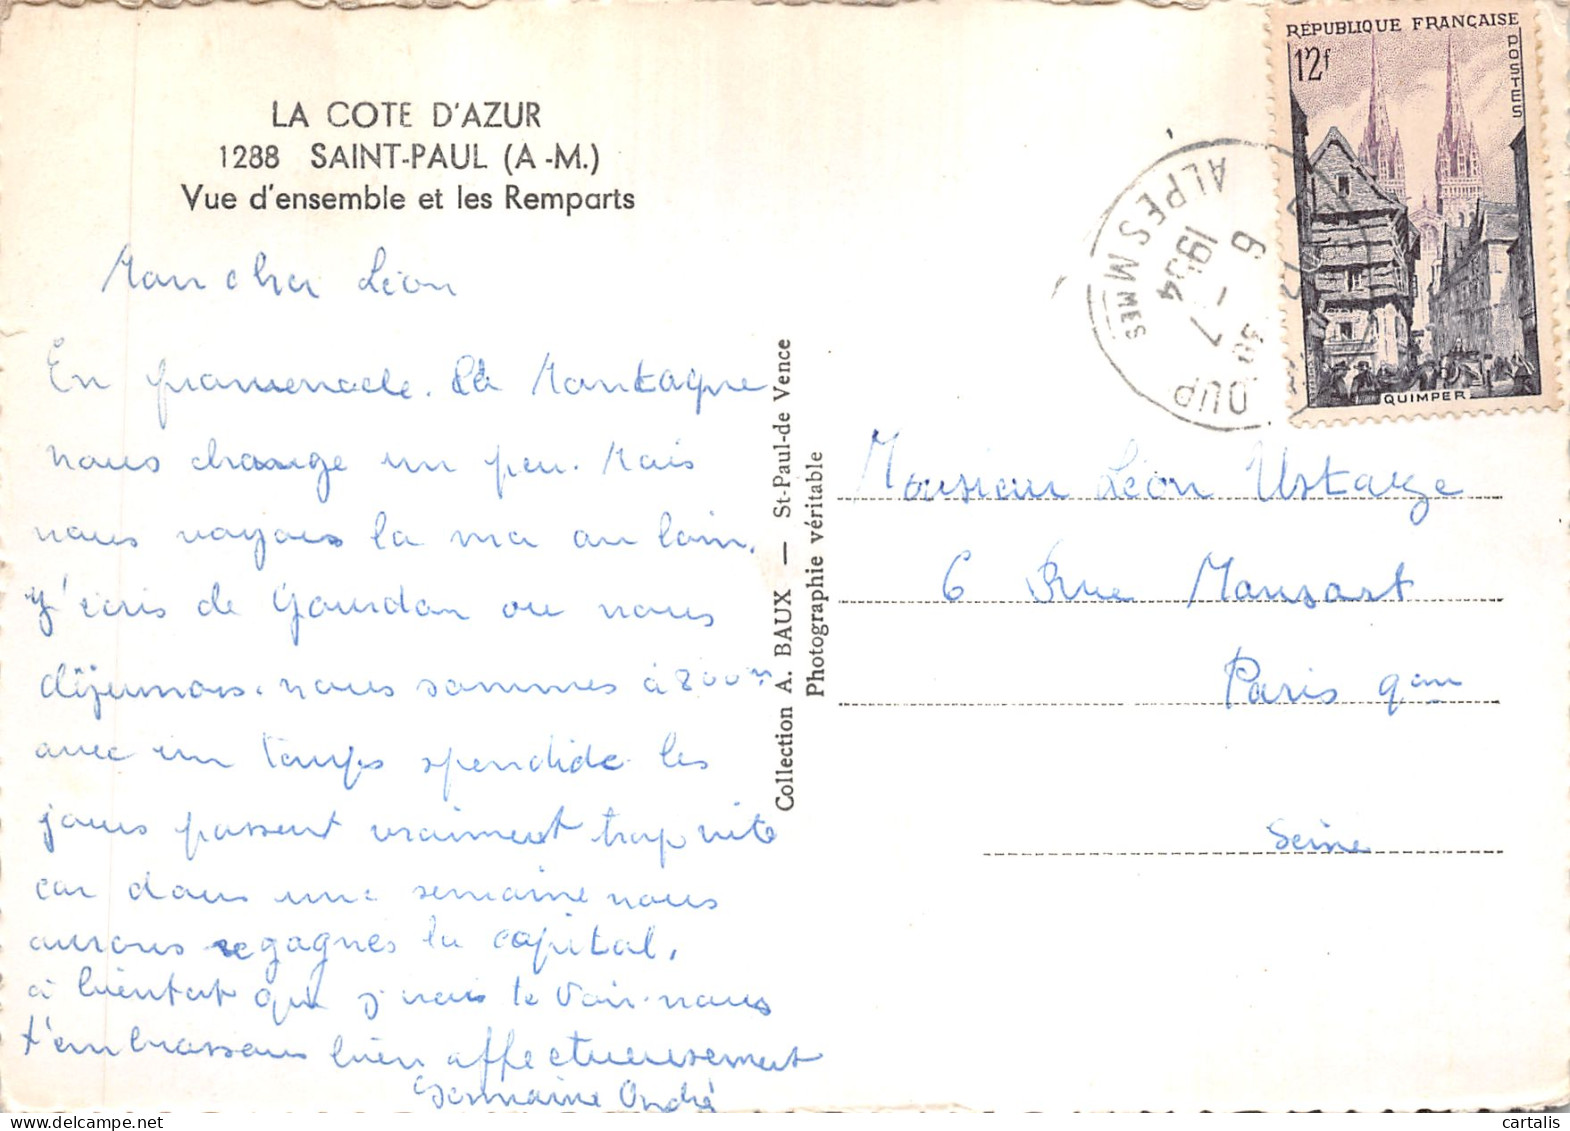 LA COTE D'AZUR
1288 SAINT-PAUL (A-M.)
Vue d'ensemble et les Remparts
Mon cher Léon
En promenade. La Montagne
nous change un peu. Mais
nous voyons la mer au loin.
J'écris de Gourdon ou nous
déjeunons. nous sommes à 800m
avec un temps spendide les
jours passent vraiment trop vite
car dans une semaine nous
aurons regagnés la capital,
à bientot que j'irais te voir. nous
t'embrassons bien affectueusement
Germaine André
Collection A. BAUX — St-Paul-de Vence
Photographie véritable
RÉPUBLIQUE FRANÇAISE
12f
POSTES
QUIMPER
ALPES MMES
6 - 7
1954
Monsieur Léon Ustarze
6 Rue Mansart
Paris 9em
Seine
cartalis